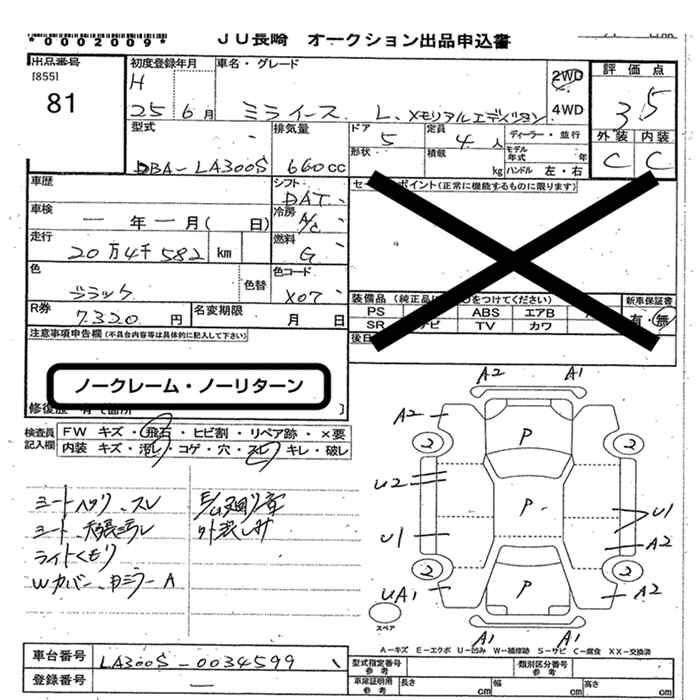 *0002009* ＪＵ長崎 オークション出品申込書
出品番号 初度登録年月 車名・グレード 評価点
[855] H 2WD
81 25 6月 ミライース L、メモリアルエディション 4WD 3.5
型式 排気量 ドア 定員 ディーラー・並行 外装 内装
5 4人 モデル年式 年
DBA-LA300S 660cc 形状 積載 kg ハンドル 左・右 C C
車歴 シフト DAT セールスポイント(正常に機能するものに限ります)
車検 一年一月(日) 冷房 A/C
走行 20万4千582 km 燃料 G
色 ブラック 色替 色コード X07
装備品 (純正品に○をつけてください) 新車保証書
R券 7320円 名変期限 月 日 PS ABS エアB 有・無
SR ナビ TV カワ
注意事項申告欄(不具合内容等は具体的に記入して下さい)
ノークレーム・ノーリターン
修復歴 有( 箇所 ]
検査員記入欄 FW キズ・飛石・ヒビ割・リペア跡・×要
内装 キズ・汚レ・コゲ・穴・スレ・キレ・破レ
シートヘタリ、スレ
ライトくもり
Wカバー、ドミラーA
A2 A1
A2
2 P 2
U2
P
U1 U1
A2
2 2
UA1 P A2
スペア
A1 A1
A-キズ E-エクボ U-凹み W-補修跡 S-サビ C-腐食 XX-交換済
車台番号 LA300S-0034599 型式指定番号 参考 類別区分番号 参考
登録番号 — 車庫証明用 参考 長さ cm 幅 cm 高さ cm